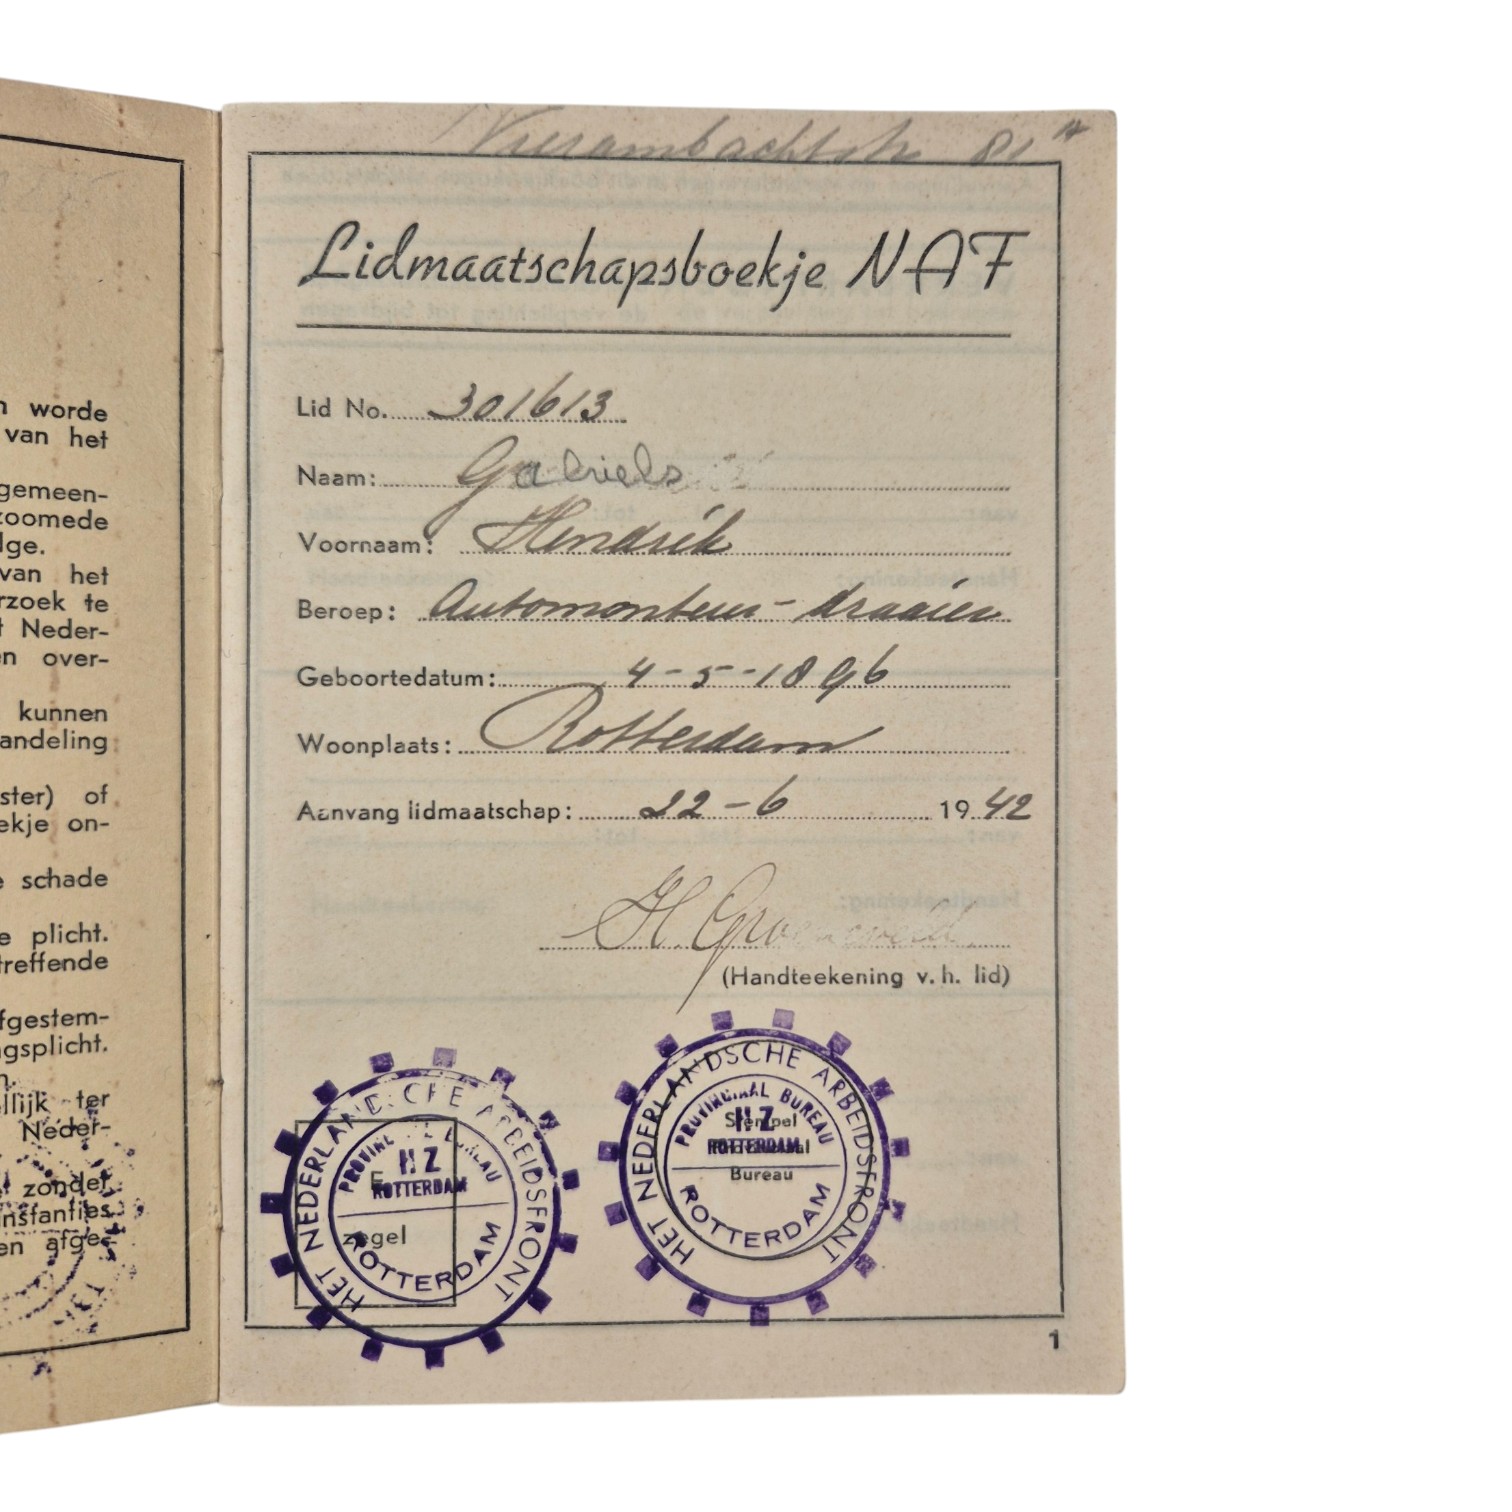 n worde
van het
gemeen-
zoomede
lge.
van het
rzoek te
t Neder-
en over-
kunnen
andeling
ster) of
ekje on-
e schade
e plicht.
treffende
fgestem-
gsplicht.
n.
llijk ter
Neder-
zonder
instanties
en afge-
Vierambachtstr 81
Lidmaatschapsboekje NAF
Lid No. 301613
Naam: Gabriels
Voornaam: Hendrik
Beroep: Automonteur - draaier
Geboortedatum: 4-5-1896
Woonplaats: Rotterdam
Aanvang lidmaatschap: 22-6 1942
H. Groeneveld
(Handteekening v. h. lid)
HET NEDERLANDSCHE ARBEIDSFRONT
PROVINCIAAL BUREAU
NZ
ROTTERDAM
zegel
ROTTERDAM
HET NEDERLANDSCHE ARBEIDSFRONT
PROVINCIAAL BUREAU
NZ
Stempel
ROTTERDAM
Bureau
ROTTERDAM
1